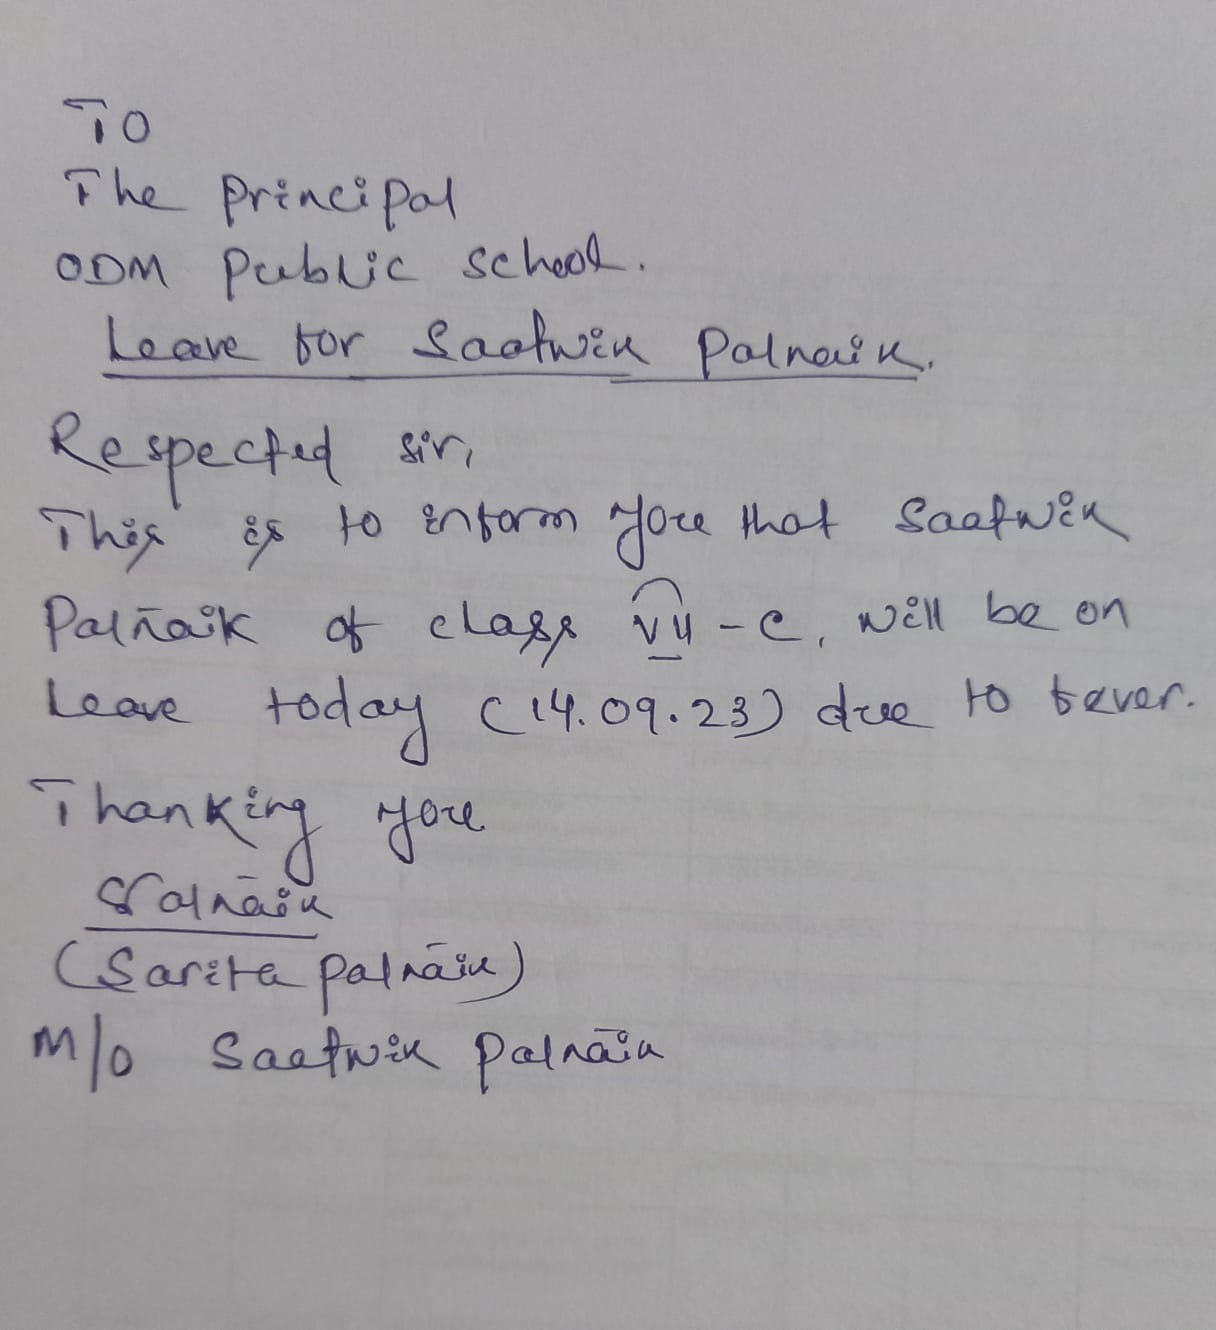 To
The Principal
ODM Public School.
Leave for Saatwik Patnaik.
Respected sir,
This is to inform you that Saatwik
Patnaik of class VII-C, will be on
Leave today (14.09.23) due to fever.
Thanking you
SPatnaik
(Sarita Patnaik)
M/o Saatwik Patnaik